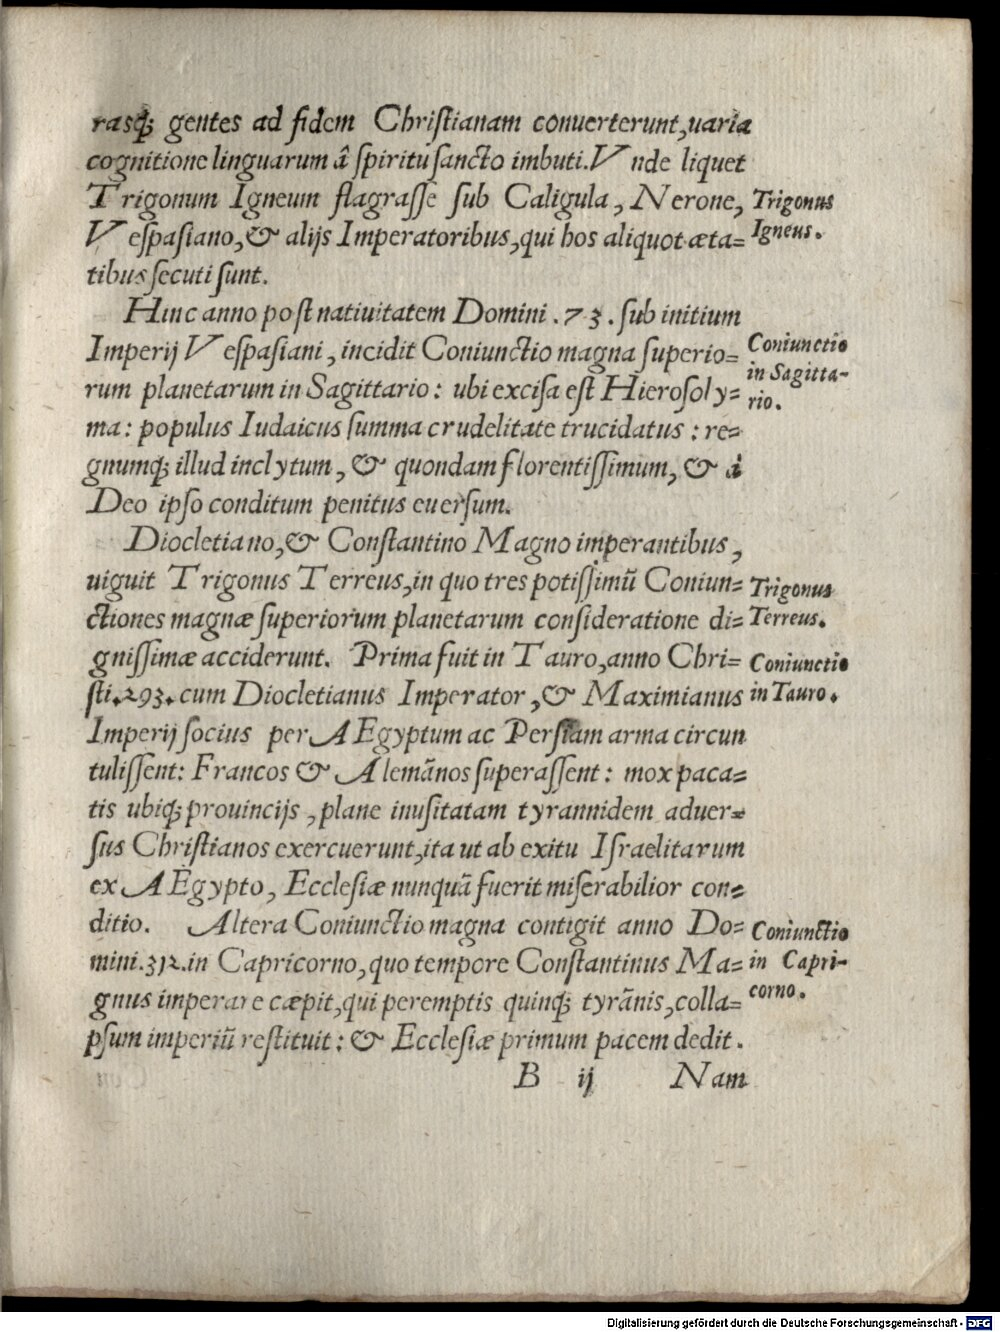 rasq́; gentes ad fidem Christianam conuerterunt, uaria
cognitione linguarum â spiritu sancto imbuti. Vnde liquet
Trigonum Igneum flagrasse sub Caligula, Nerone,
Vespasiano, & alijs Imperatoribus, qui hos aliquot æta=
tibus secuti sunt.
Trigonus
Igneus.
Hinc anno post natiuitatem Domini .73. sub initium
Imperij Vespasiani, incidit Coniunctio magna superio=
rum planetarum in Sagittario: ubi excisa est Hierosoly=
ma: populus Iudaicus summa crudelitate trucidatus: re=
gnumq́; illud inclytum, & quondam florentissimum, & à
Deo ipso conditum penitus euersum.
Coniunctio
in Sagitta-
rio.
Diocletiano, & Constantino Magno imperantibus,
uiguit Trigonus Terreus, in quo tres potissimū Coniun=
ctiones magnæ superiorum planetarum consideratione di=
gnissimæ acciderunt. Prima fuit in Tauro, anno Chri=
sti .293. cum Diocletianus Imperator, & Maximianus
Imperij socius per AEgyptum ac Persiam arma circun
tulissent: Francos & Alemānos superassent: mox paca=
tis ubiq́; prouincijs, plane inusitatam tyrannidem aduer=
sus Christianos exercuerunt, ita ut ab exitu Israelitarum
ex AEgypto, Ecclesiæ nunquā fuerit miserabilior con=
ditio. Altera Coniunctio magna contigit anno Do=
mini .312. in Capricorno, quo tempore Constantinus Ma=
gnus imperare cæpit, qui peremptis quinq́; tyrānis, colla=
psum imperiū restituit: & Ecclesiæ primum pacem dedit.
Trigonus
Terreus.
Coniunctio
in Tauro.
Coniunctio
in Capri-
corno.
B ij Nam
Digitalisierung gefördert durch die Deutsche Forschungsgemeinschaft - DFG